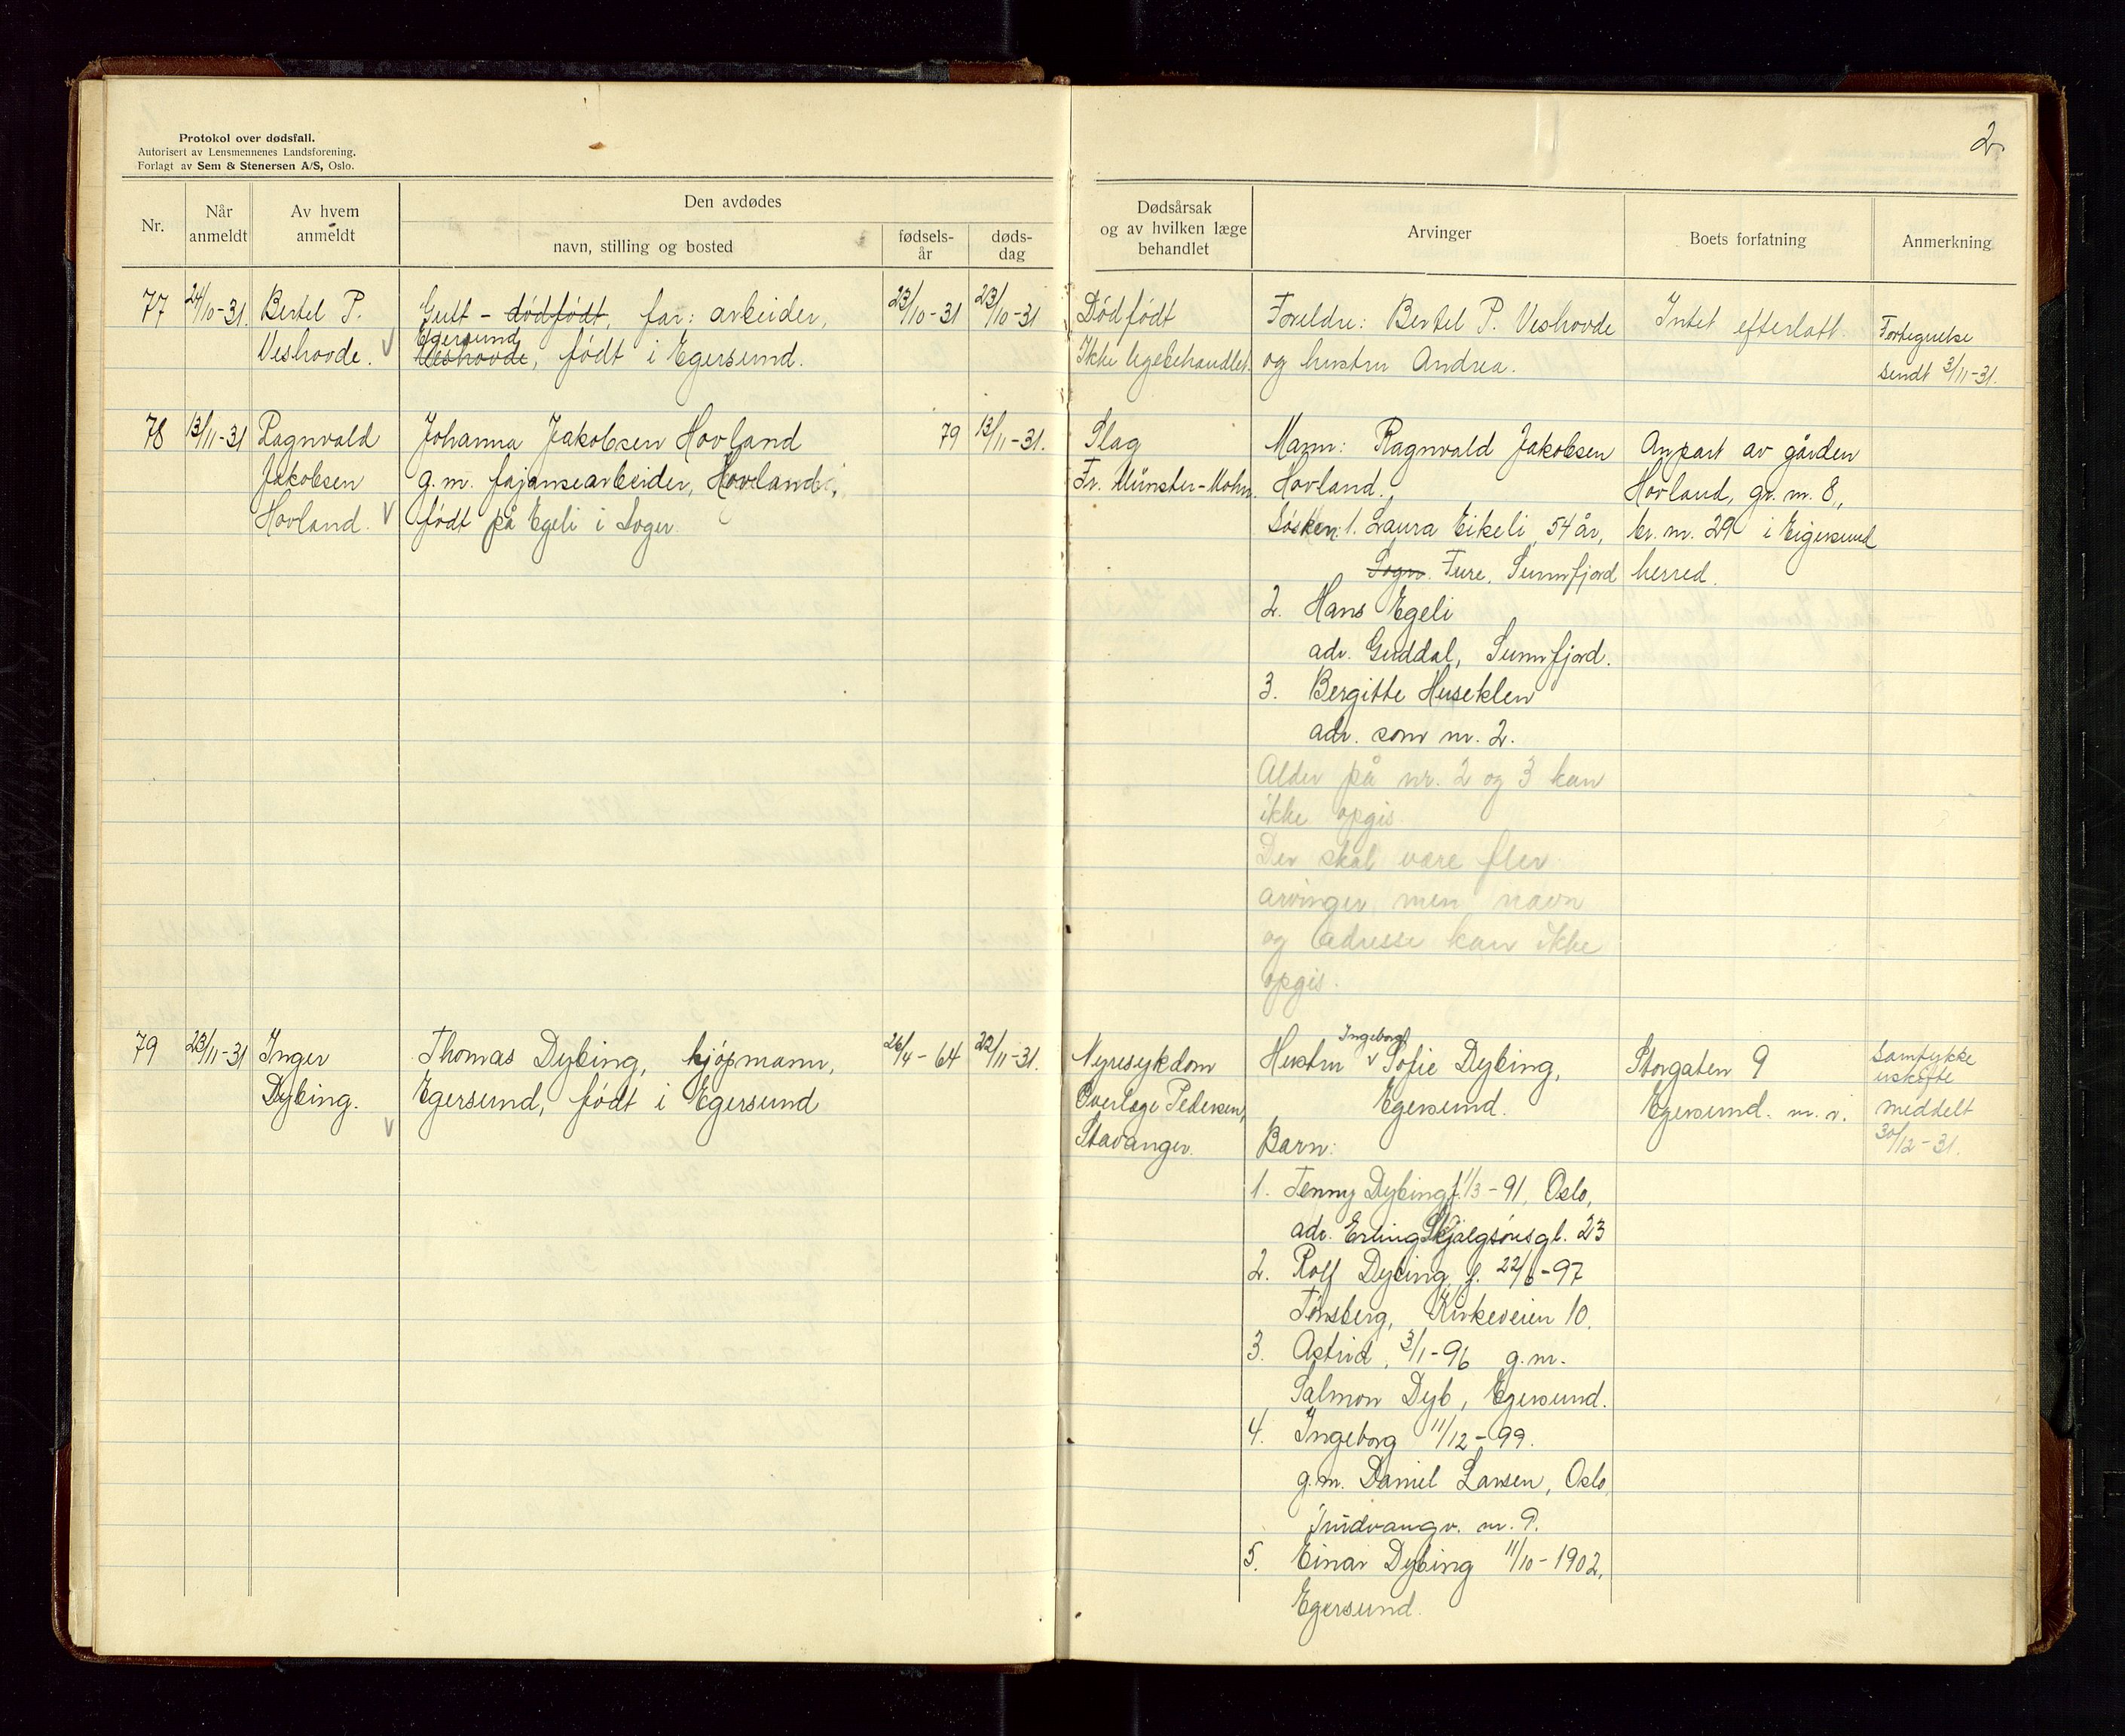 Protokol over dødsfall.
Autorisert av Lensmennenes Landsforening.
Forlagt av Sem & Stenersen A/S, Oslo.
2
Nr.
Når anmeldt
Av hvem anmeldt
Den avdødes
navn, stilling og bosted
fødselsår
dødsdag
Dødsårsak og av hvilken læge behandlet
Arvinger
Boets forfatning
Anmerkning
77
24/10-31.
Bertel P.
Veshovde.
Gutt - dödfödt, far: arbeider,
Egersund
Veshovde, født i Egersund.
23/10-31
23/10-31
Dödfödt
Ikke legebehandlet.
Foreldre: Bertel P. Veshovde
og hustru Andrea.
Intet efterlatt.
Fortegnelse
sendt 3/11-31.
78
13/11-31
Ragnvald
Jakobsen
Hovland.
Johanna Jakobsen Hovland
g.m. fajansearbeider, Hovland,
født på Egeli i Soger.
79
13/11-31.
Slag
Fr. Münster-Mohn.
Mann: Ragnvald Jakobsen
Hovland.
Søsken: 1. Laura Eikeli, 54 år,
Sogn. Fure, Sunnfjord
2. Hans Egeli
adr. Guddal, Sunnfjord.
3. Bergitte Huseklev
adr. som nr. 2.
Alder på nr. 2 og 3 kan
ikke opgis.
Der skal være fler
arvinger men navn
og adresse kan ikke
opgis.
Anpart av gården
Hovland, gr. nr. 8,
br. nr. 29 i Eigersund
herred.
79
23/11-31
Inger
Dybing.
Thomas Dybing, kjöpmann,
Egersund, født i Egersund
26/4-64
22/11-31.
Nyresykdom
Overlæge Pedersen,
Stavanger.
Ingeborg
Hustru v Sofie Dybing,
Egersund.
Barn:
1. Jenny Dybing f. 1/3-91, Oslo,
adr. Erling Skjalgsönsgt. 23
2. Rolf Dybing, f. 22/6-97
Tønsberg, Kirkeveien 10.
3. Astrid, 3/1-96 g.m.
Salmon Dyb, Egersund.
4. Ingeborg 11/12-99.
g.m. Daniel Larsen, Oslo
nr. 9.
5. Einar Dybing 11/10-1902,
Egersund.
Storgaten 9
Egersund. m. v.
Samtykke
uskifte
meddelt
30/12-31.